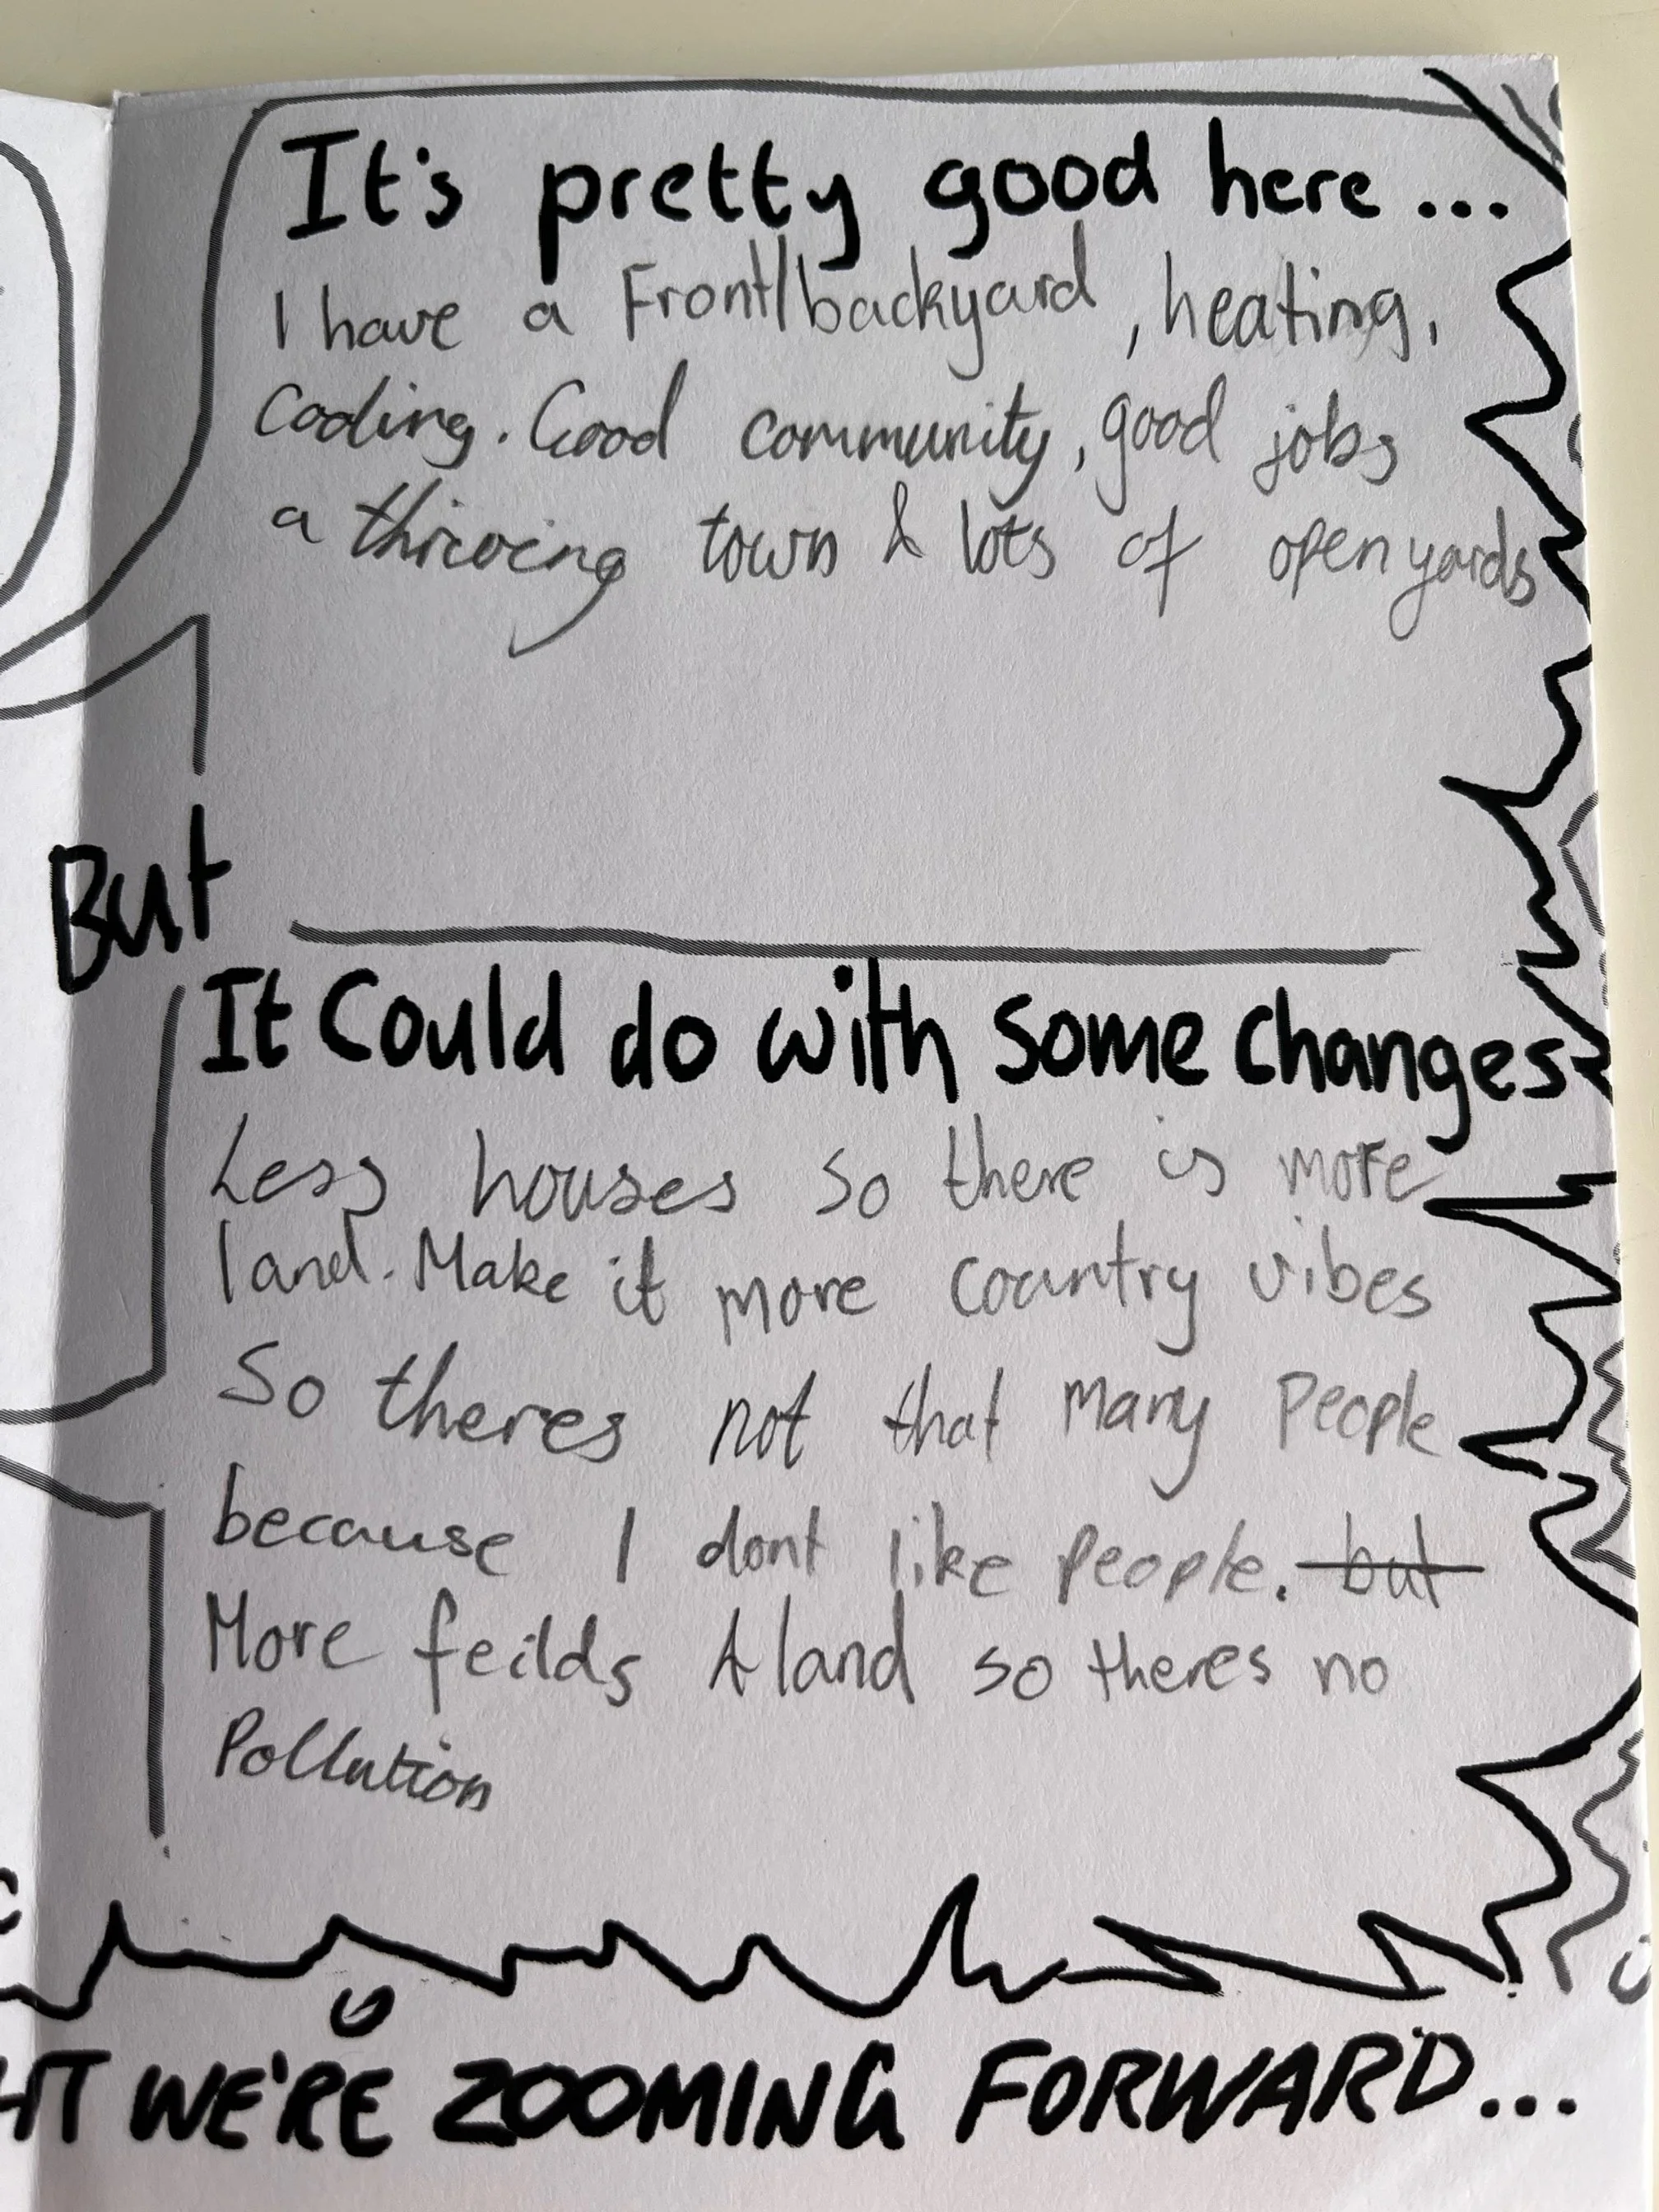 It's pretty good here...
I have a Front/backyard, heating,
Cooling. Good community, good jobs
a thriving town & lots of open yards
But
It Could do with some changes
Less houses so there is more
land. Make it more country vibes
So theres not that many people
because I dont like people. but
More feilds & land so theres no
Pollution
HT WE'RE ZOOMING FORWARD...